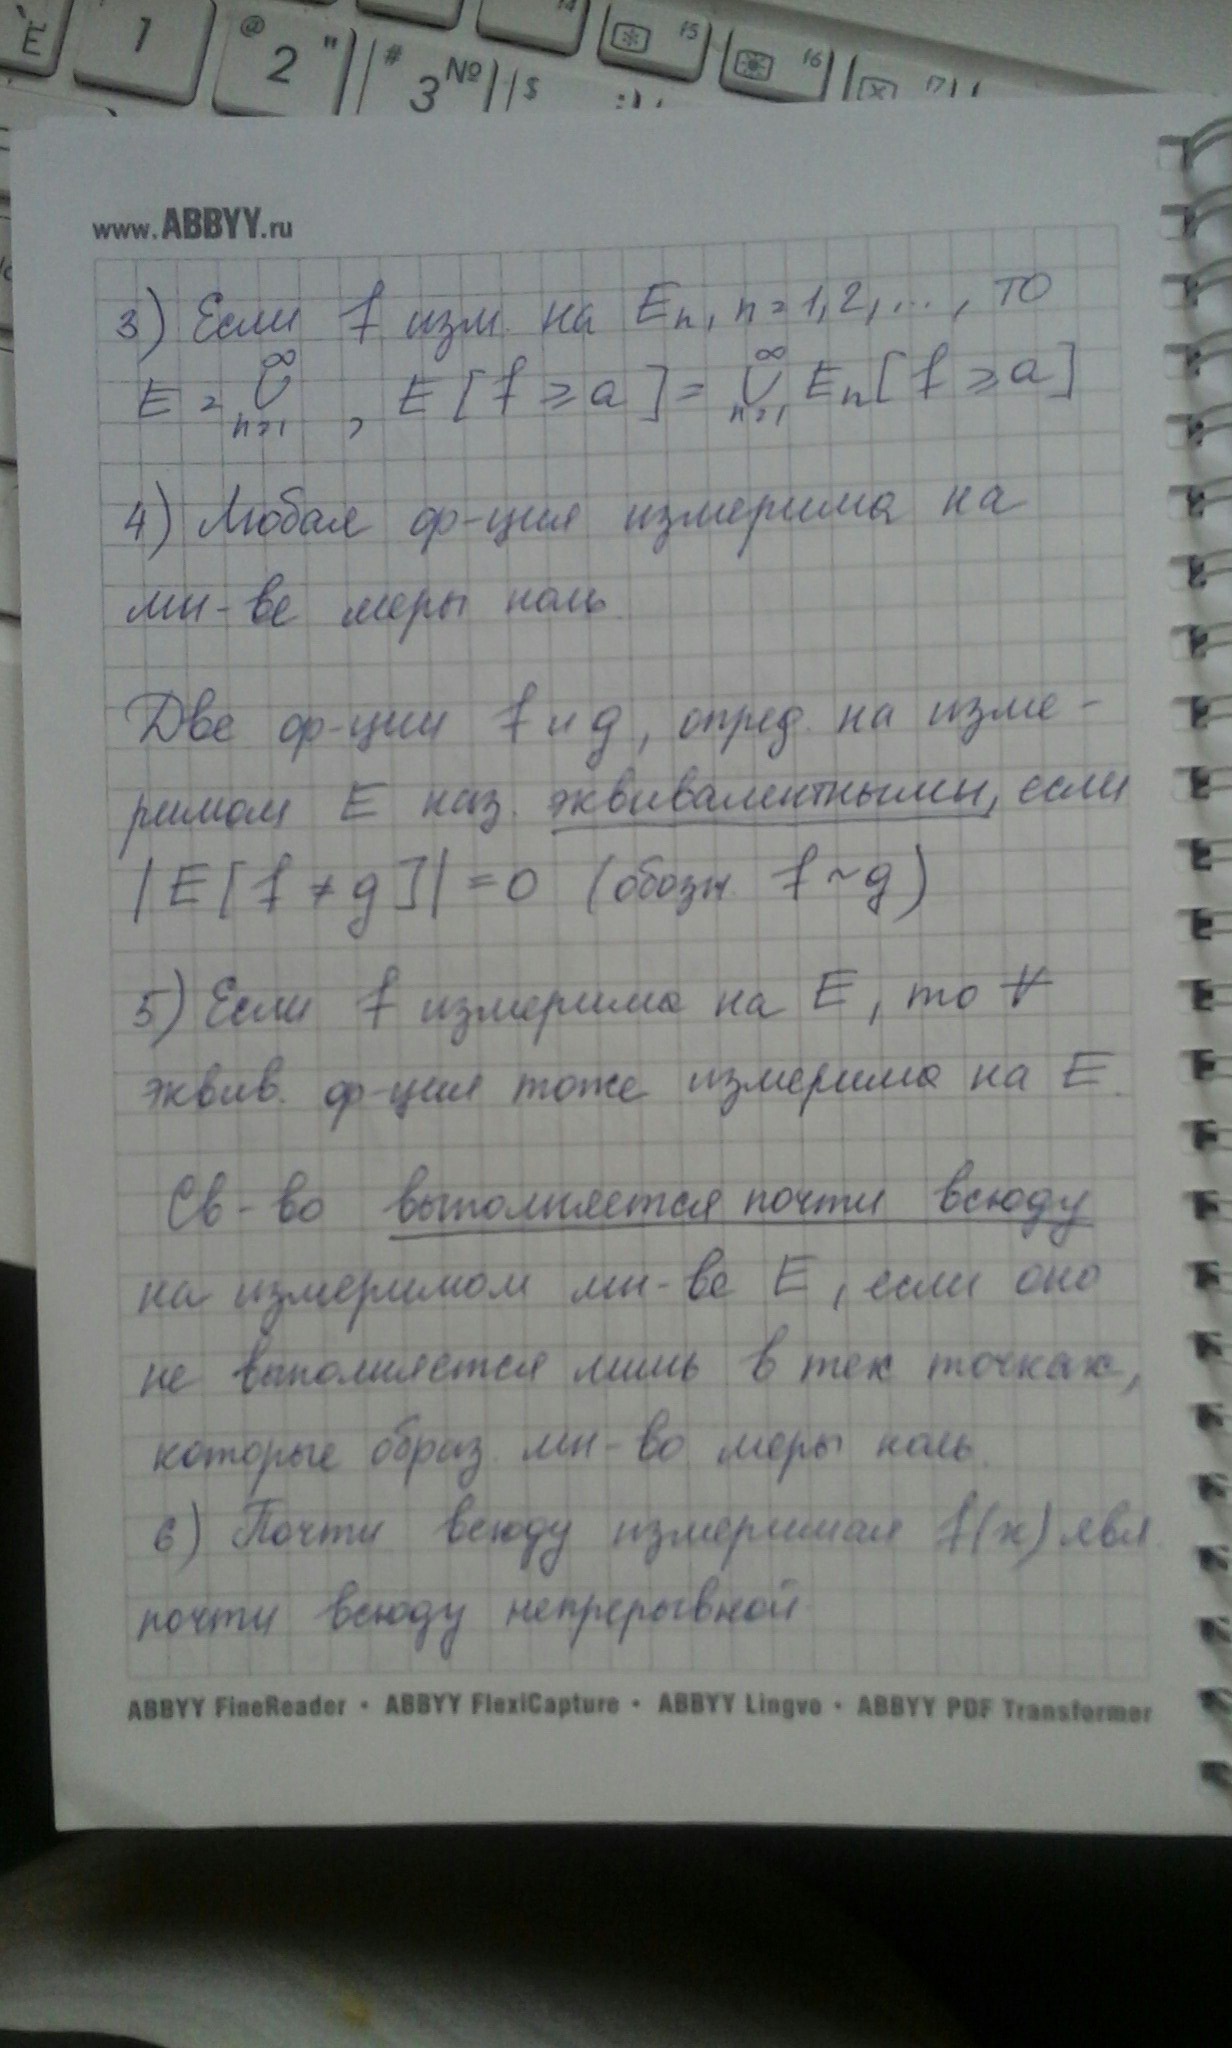 Ё 1 @ 2 " # 3 № $ 14 15 16 17
www.ABBYY.ru
3) Если f изм. на Eₙ, n=1,2,..., то
E = ∞∪n=1 , E[f ⩾ a] = ∞∪n=1 Eₙ[f ⩾ a]
4) Любая ф-ция измерима на
мн-ве меры ноль.
Две ф-ции f и g, опред. на изме-
римом E наз. эквивалентными, если
|E[f ≠ g]| = 0 (обозн. f ~ g)
5) Если f измерима на E, то ∀
эквив. ф-ция тоже измерима на E.
Св-во выполняется почти всюду
на измеримом мн-ве E, если оно
не выполняется лишь в тех точках,
которые образ. мн-во меры ноль.
6) Почти всюду измеримая f(x) явл.
почти всюду непрерывной
ABBYY FineReader • ABBYY FlexiCapture • ABBYY Lingvo • ABBYY PDF Transformer